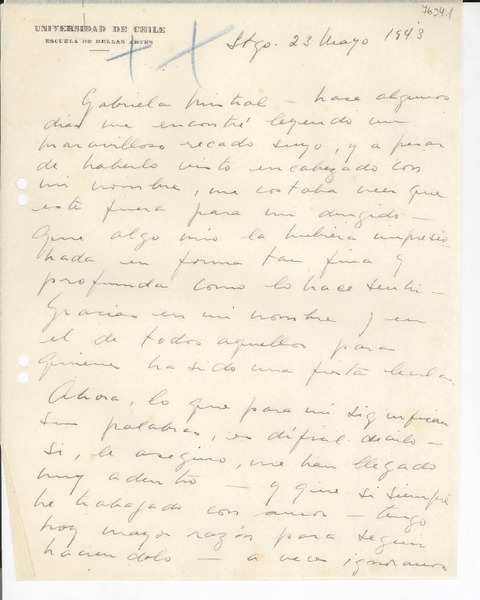 7634.1
UNIVERSIDAD DE CHILE
ESCUELA DE BELLAS ARTES
Stgo. 23 Mayo 1943
Gabriela Mistral – hace algunos
dias me encontré leyendo un
maravilloso recado suyo, y a pesar
de haberlo visto encabezado con
mi nombre, me costaba creer que
este fuera para mi dirigido –
Que algo mio la hubiera impresio
nada en forma tan fina y
profunda como lo hace sentir –
Gracias en mi nombre y en
el de todos aquellos para
quienes ha sido una fiesta leerla.
Ahora, lo que para mi significan
sus palabras, es dificil decirlo –
Si, le aseguro, me han llegado
muy adentro – y que si siempre
he trabajado con amor – tengo
hoy mayor razón para seguir
haciendolo – a veces